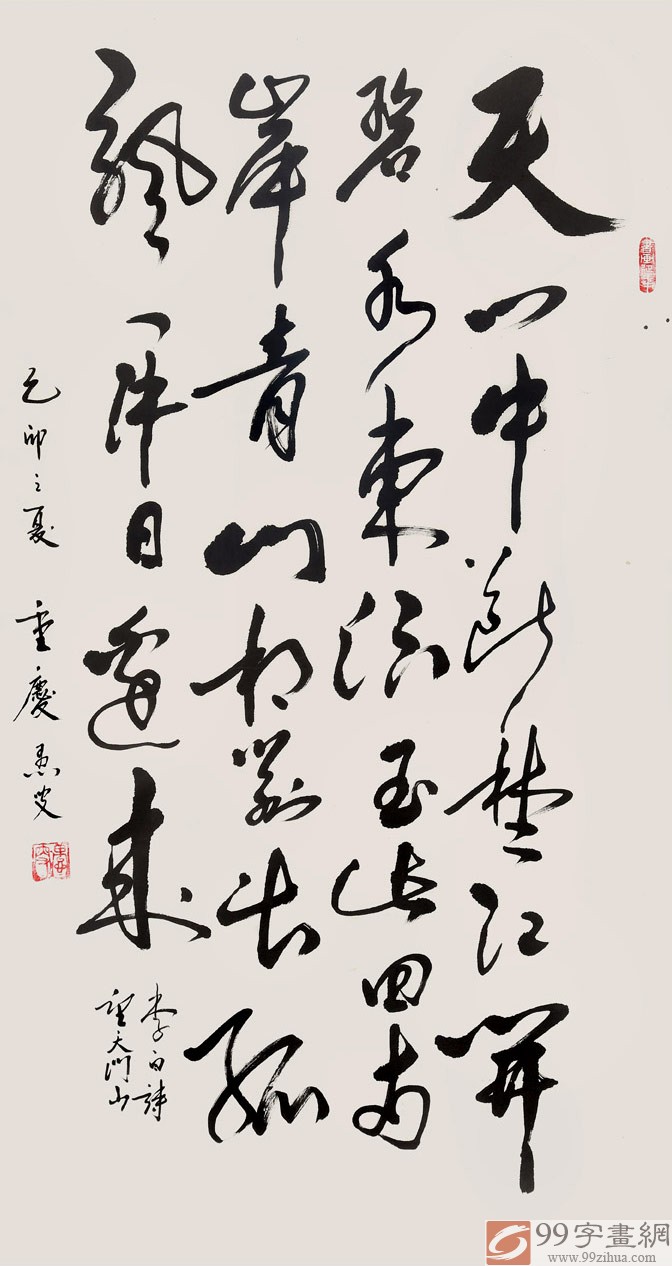 天门中断楚江開
碧水東流至此回两
岸青山相對出孤
颿一片日邊来
李白詩
望天門山
己卯之夏 重慶愚叟
99字畫網
www.99zihua.com